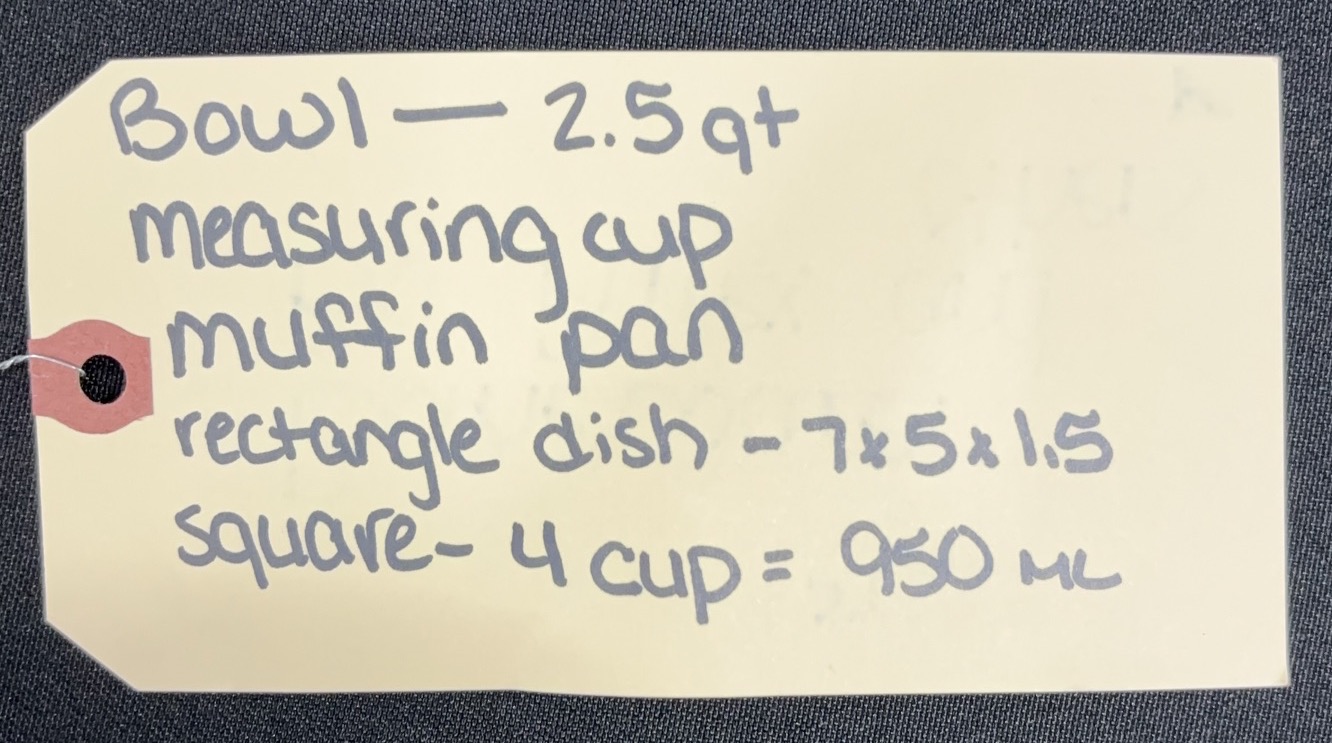 Bowl — 2.5 qt
measuring cup
muffin pan
rectangle dish - 7x5x1.5
square- 4 cup = 950 ML